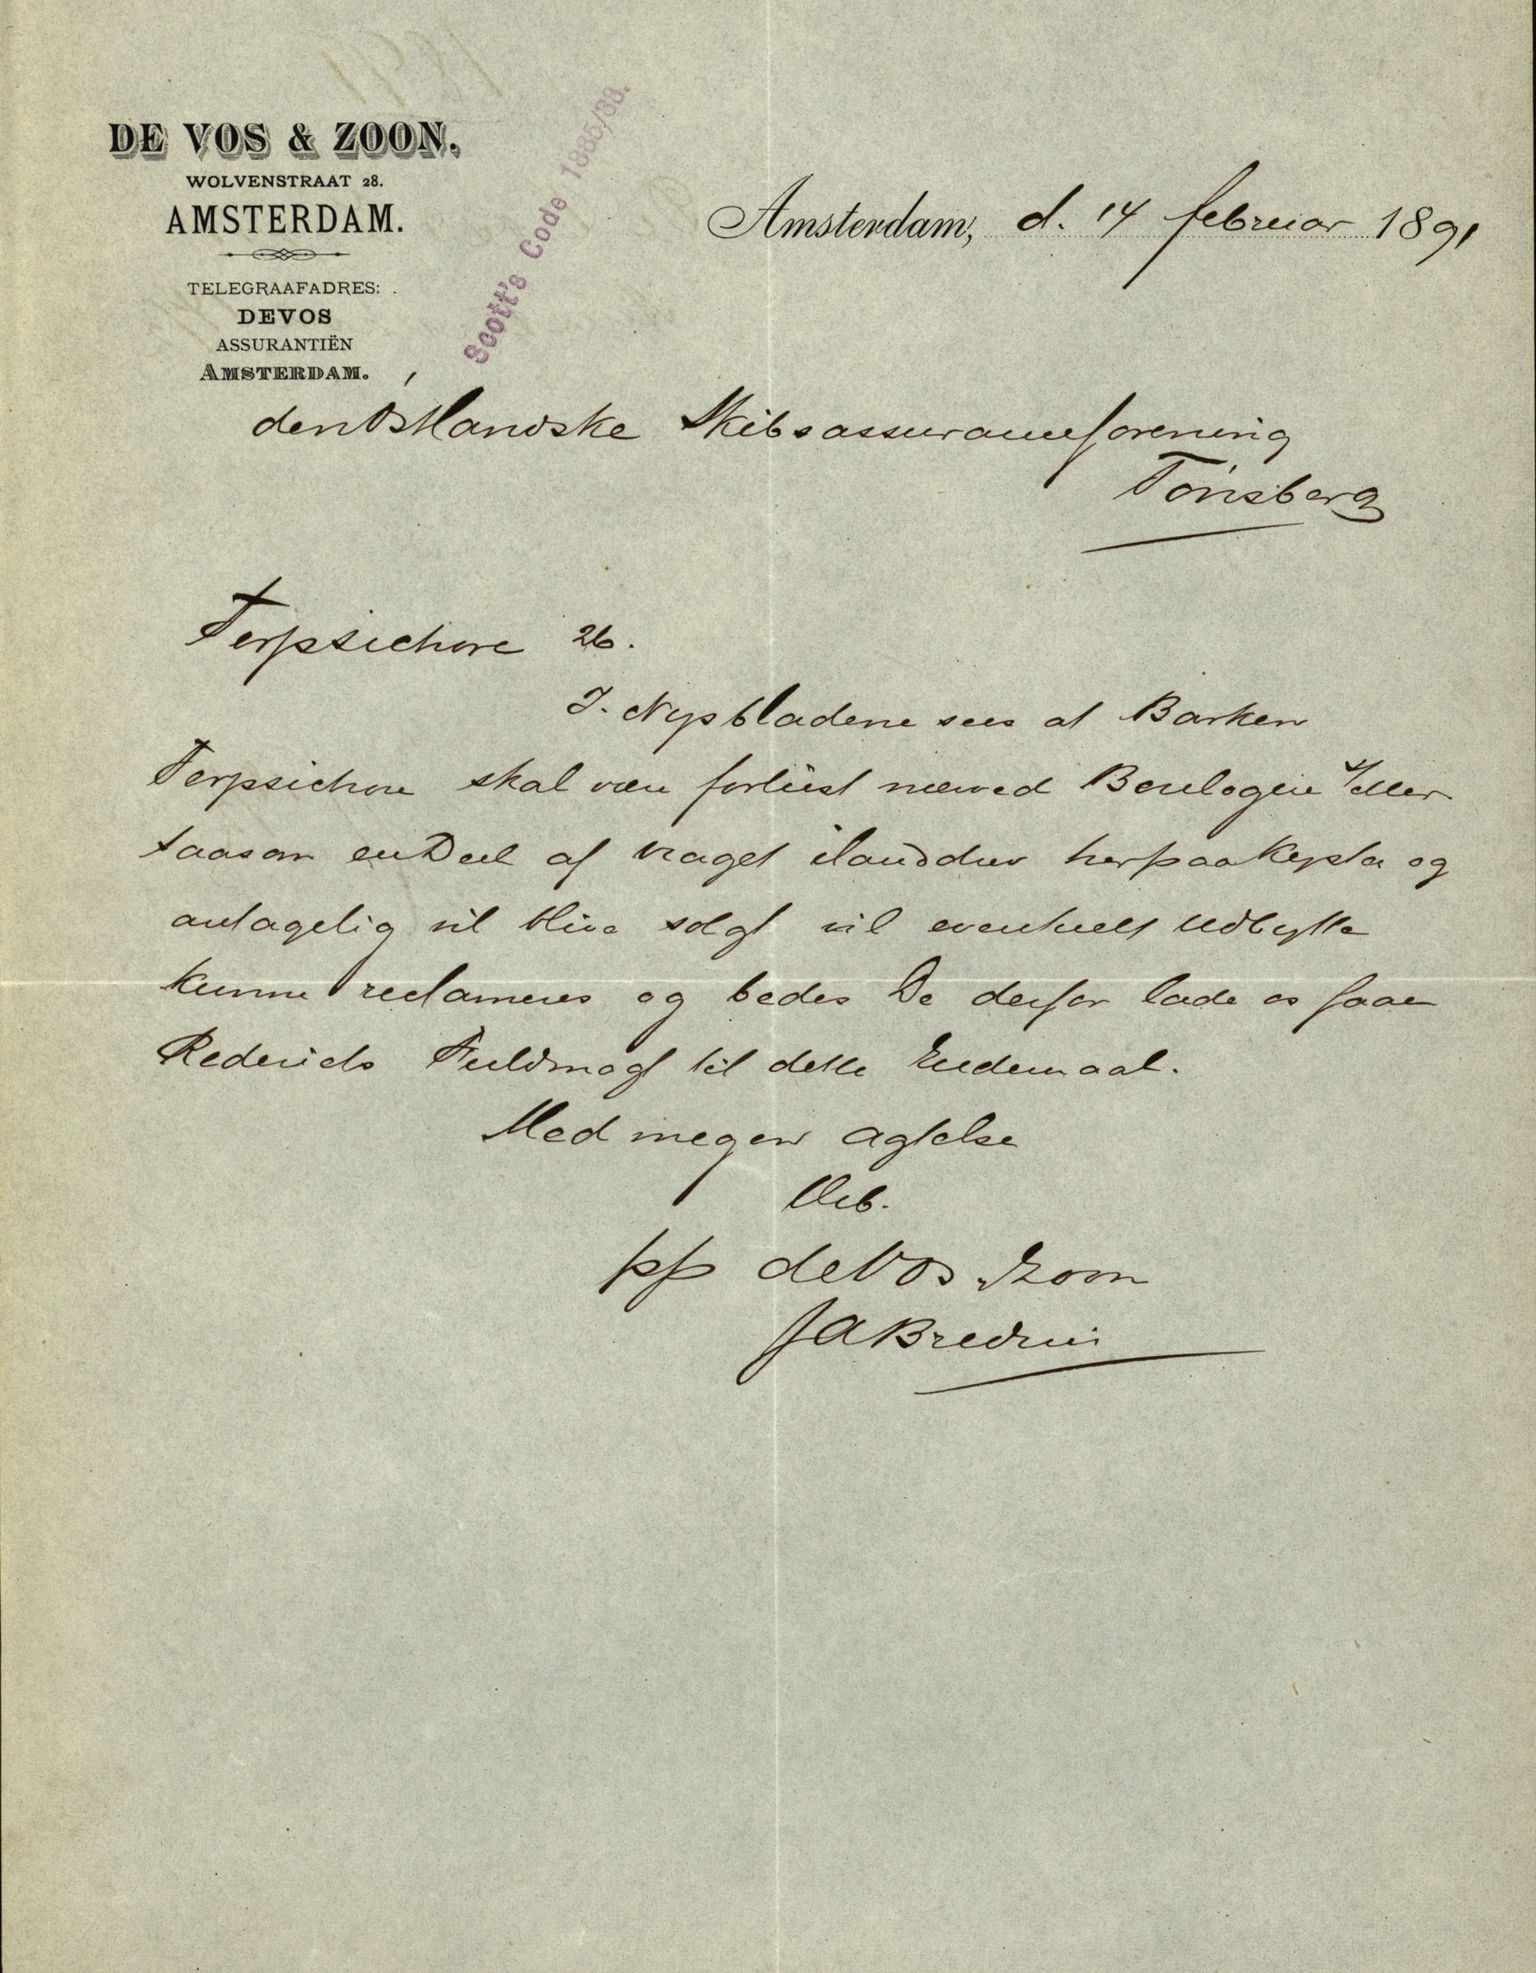 DE VOS & ZOON.
WOLVENSTRAAT 28.
AMSTERDAM.
TELEGRAAFADRES:
DEVOS
ASSURANTIËN
AMSTERDAM.
Scott's Code 1885/88.
Amsterdam, d. 14 februar 1891
den Østlandske Skibsassuranceforening
Tönsberg
Terpsichore 26.
I. Nysbladene sees at Barken
Terpsichore skal være forliist Boulogne
saasom en Deel af vraget ilanddrev her paa Kysten og
antagelig vil blive solgt vil eventuelt Udbytte
kunne reclameres og bedes De derfor lade os faae
Rederiets Fuldmagt til dette Endemaal.
Med megen agtelse
Erb.
pp de Vos & Zoon
JABredius